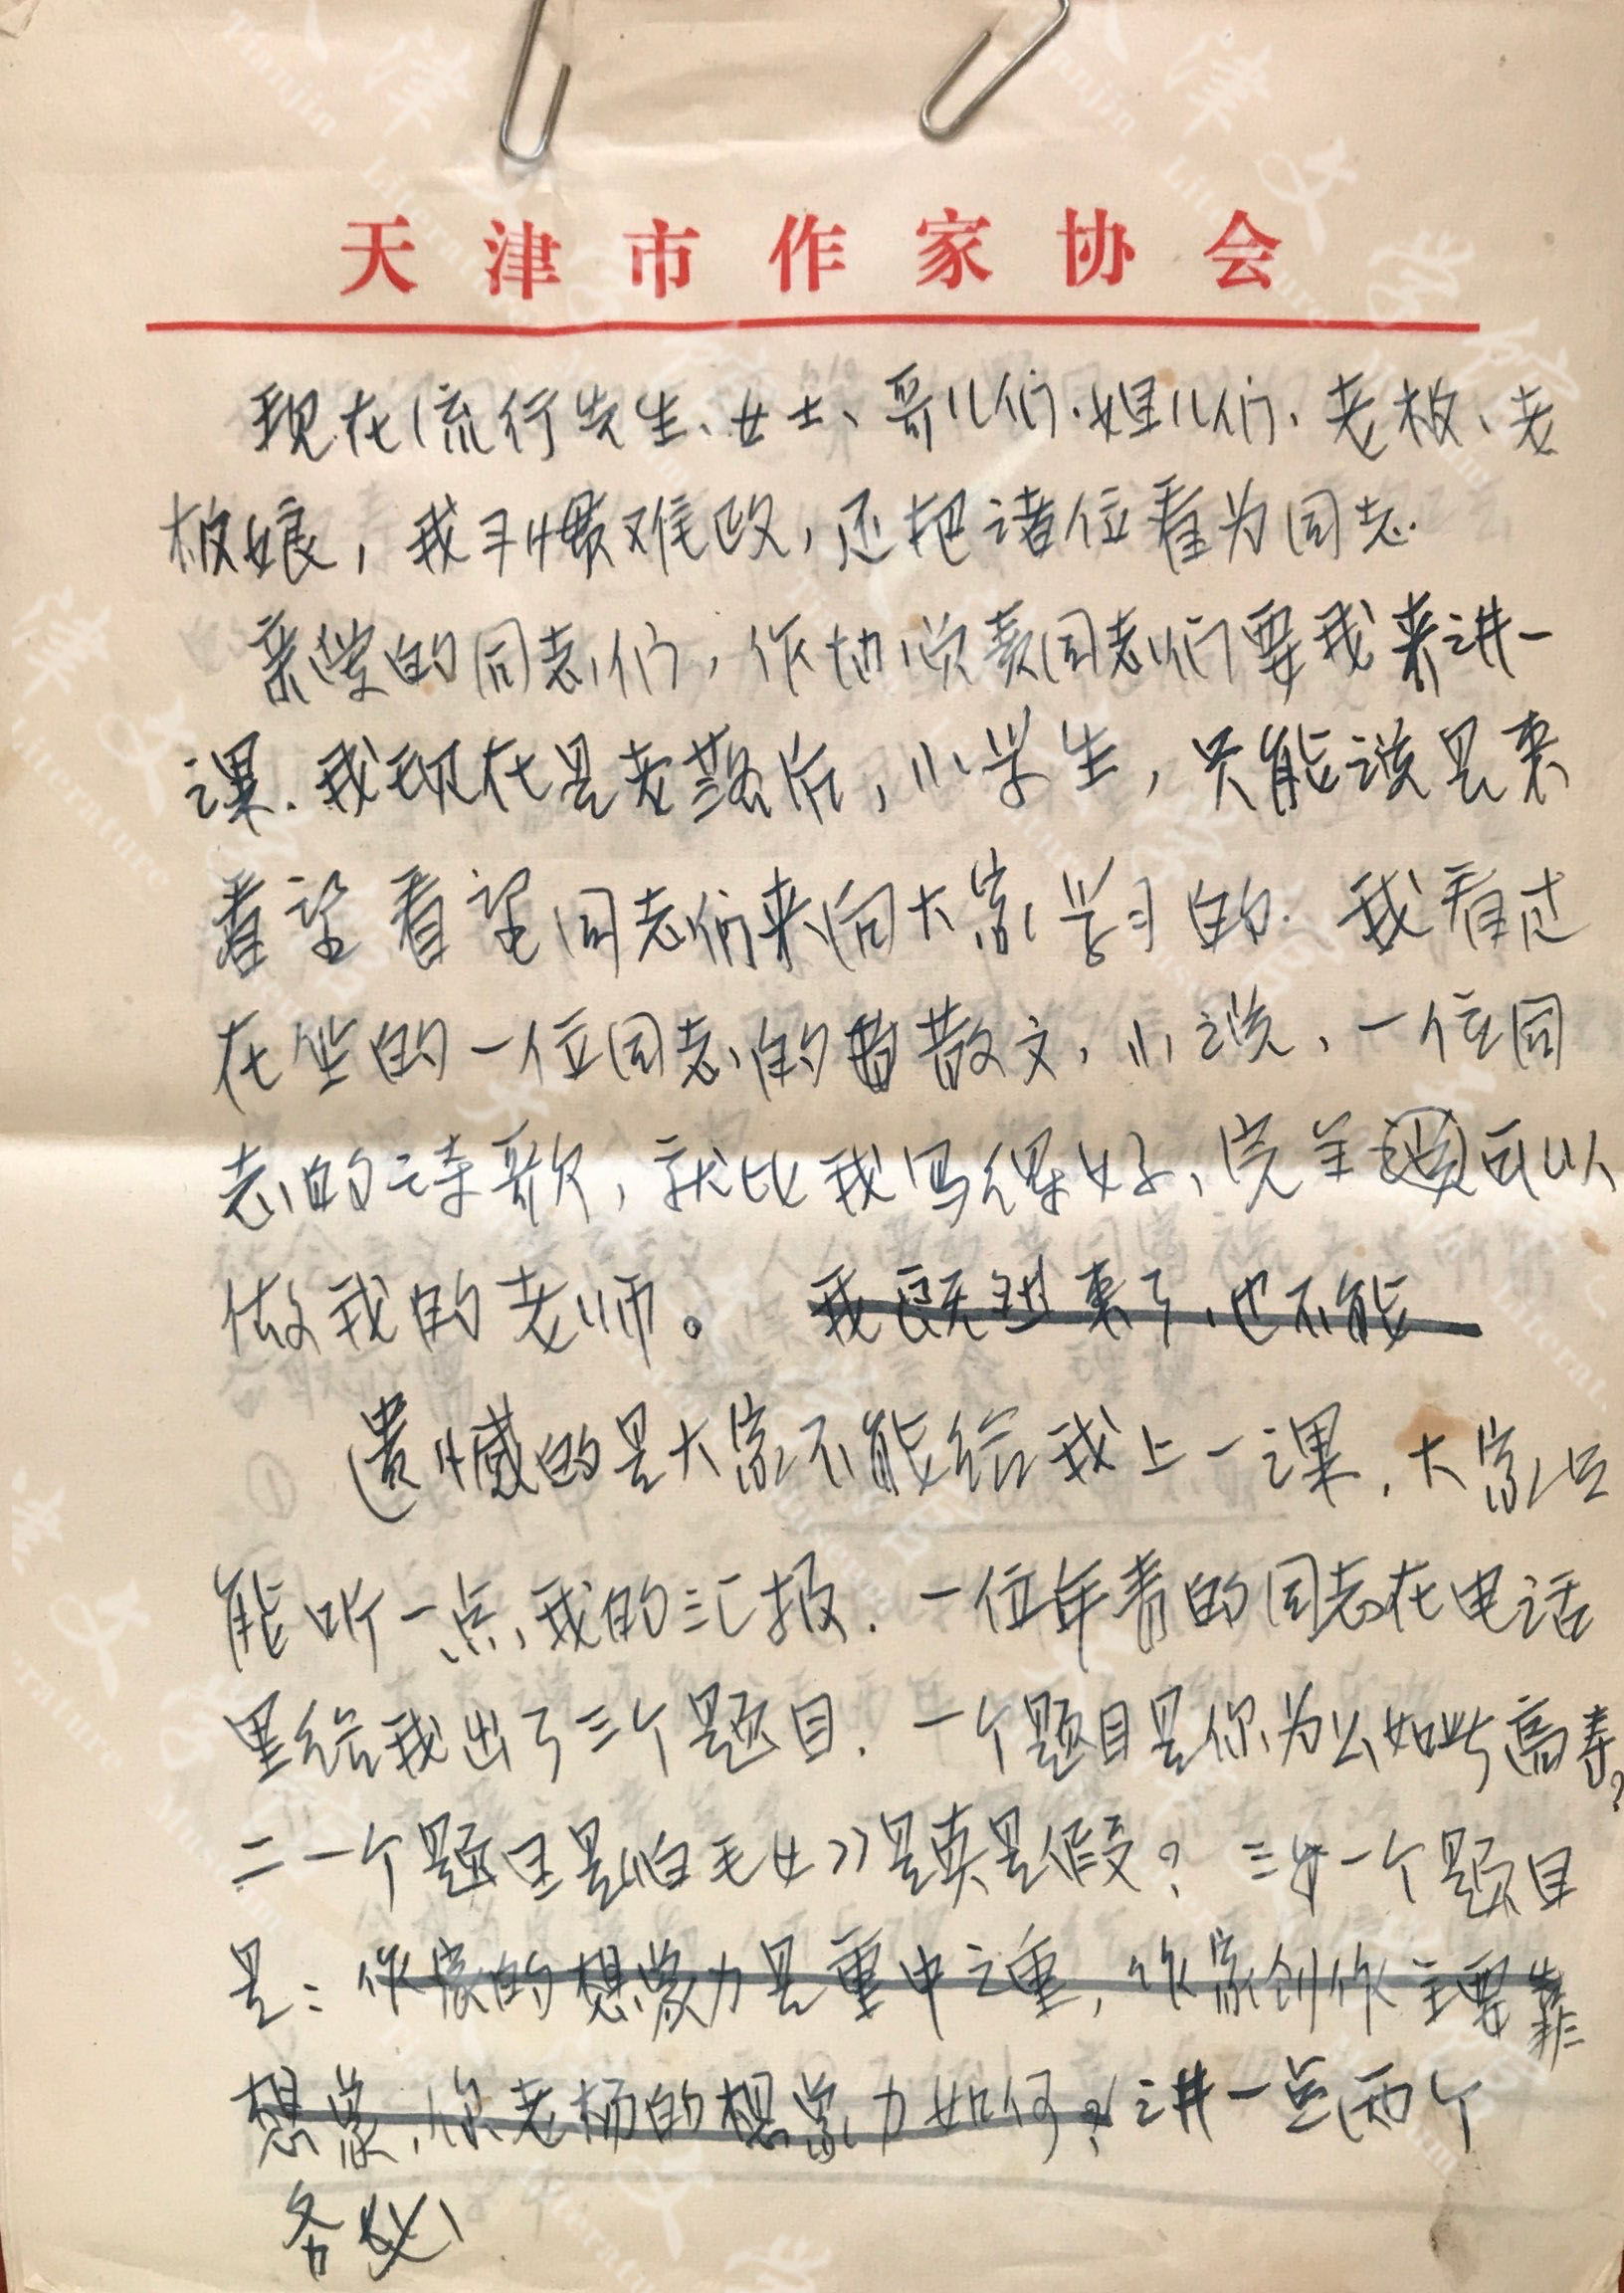 天津市作家协会
现在流行先生、女士、哥儿们、姐儿们、老板、老
板娘，我习惯难改，还把诸位看为同志.
亲爱的同志们，作协负责同志们要我来讲一
课.我现在是老落后，小学生，只能说是来
看望看望同志们来向大家学习的.我看过
在坐的一位同志的散文，小说、一位同
志的诗歌，就比我写得好、完全可以
做我的老师。 我既然来了，也不能
遗憾的是大家不能给我上一课，大家只
能听一点我的汇报.一位年青的同志在电话
里给我出了三个题目.一个题目是你为么如此高寿？
二一个题目是《白毛女》是真是假？三一个题目
是：作家的想象力是重中之重，作家创作主要靠
想象，你老杨的想象力如何？讲一点两个
务必